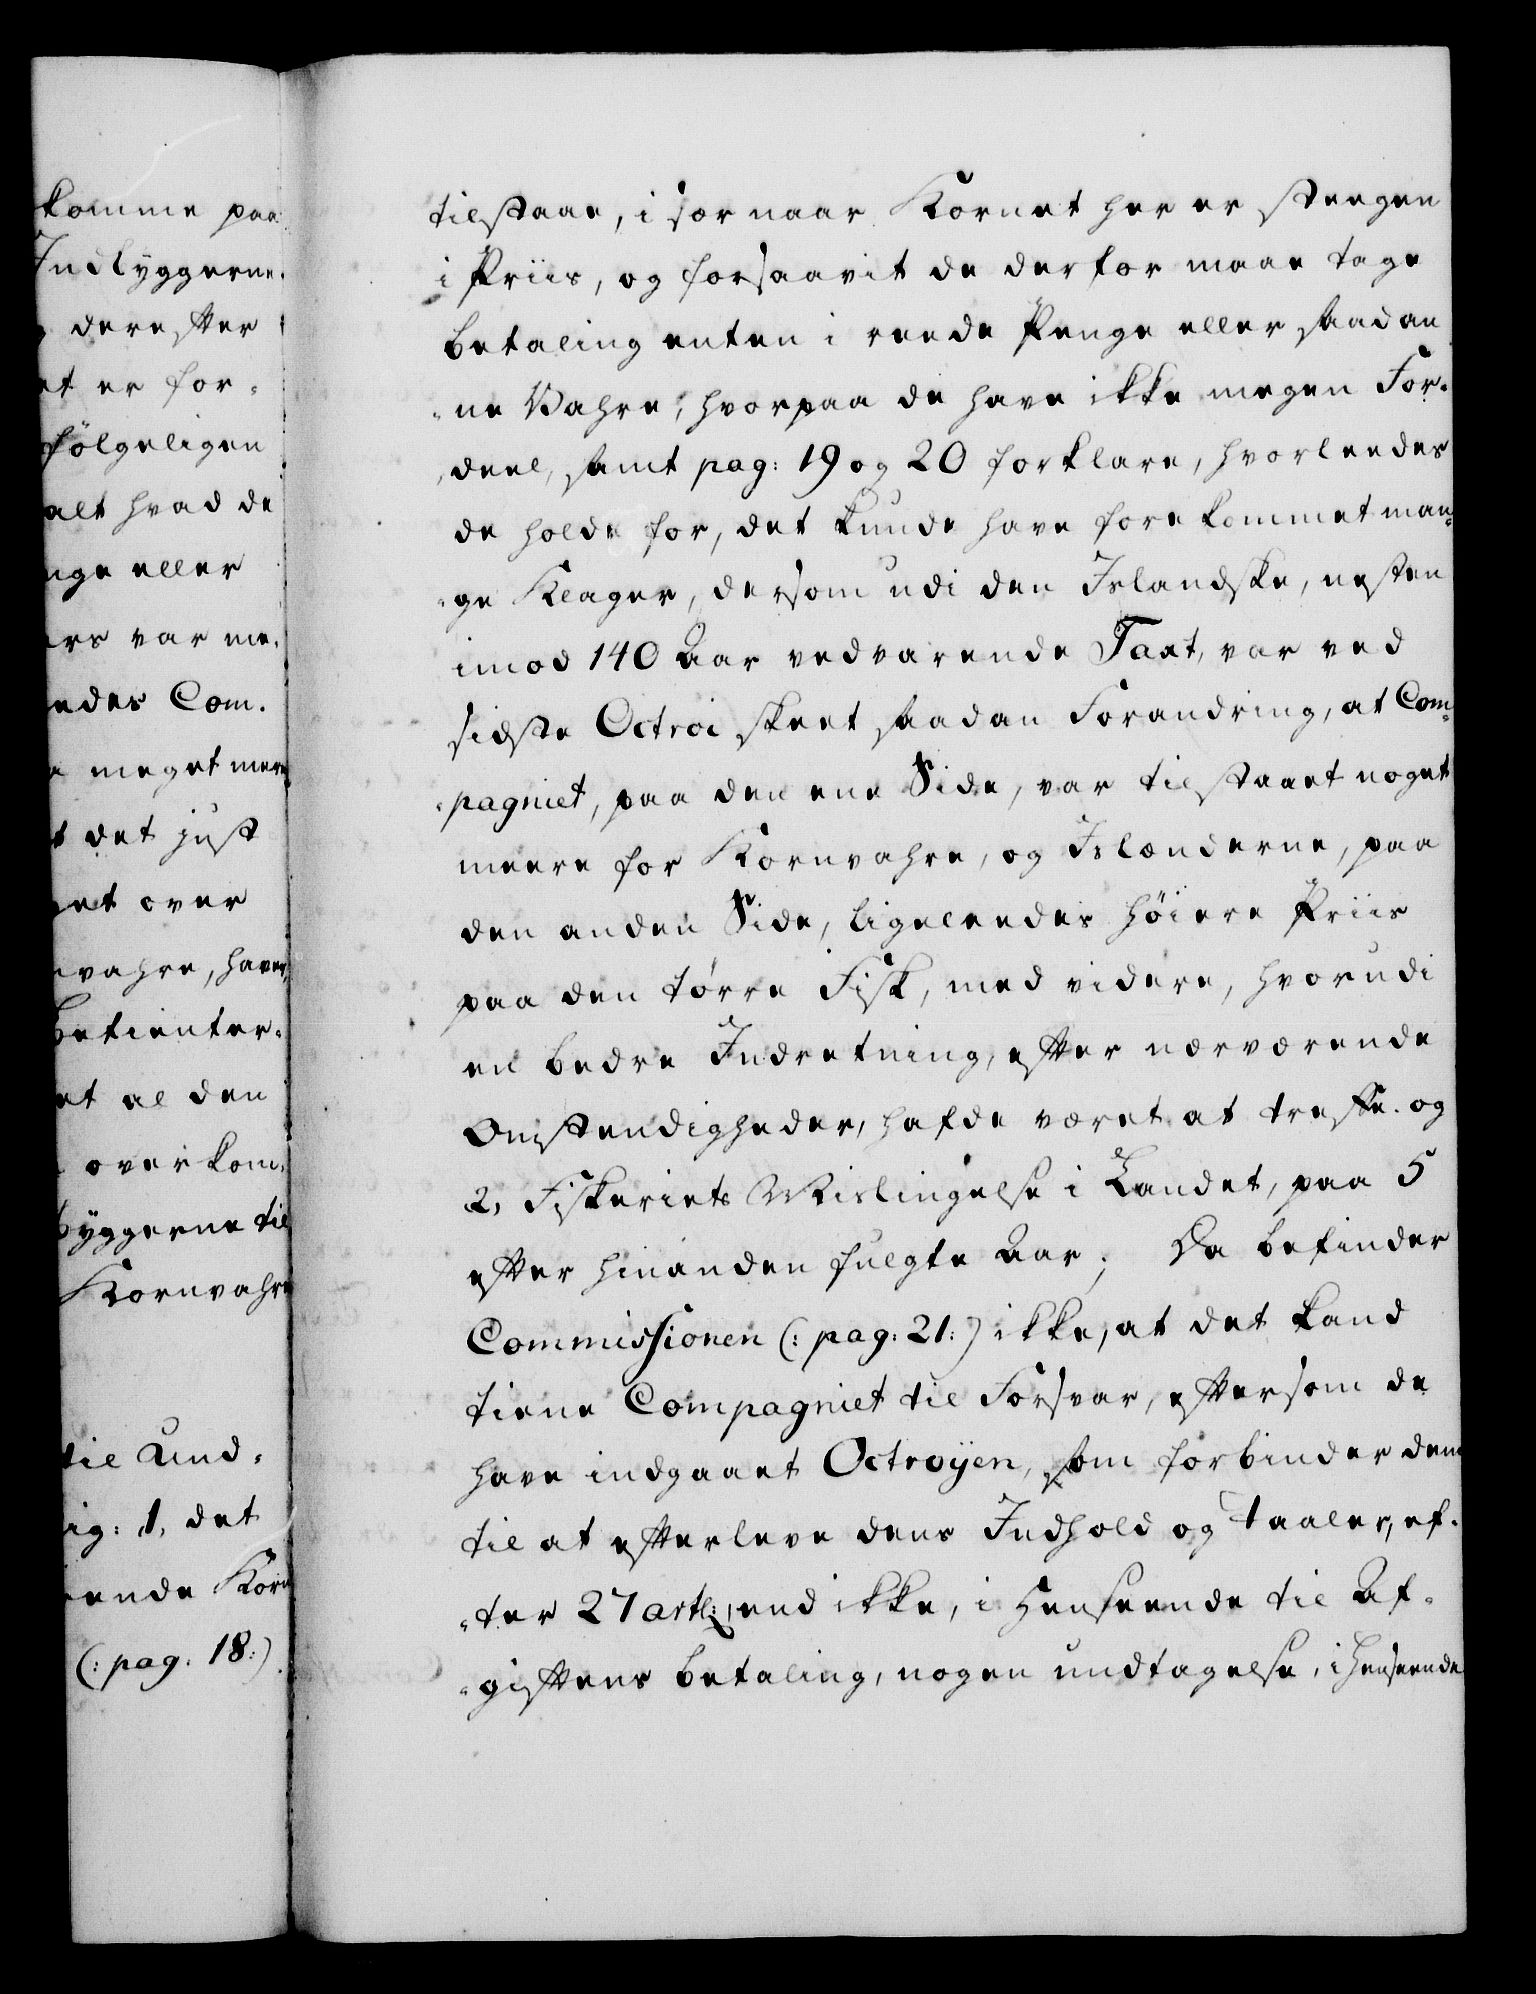 komme paa
Indbyggerne.
derefter
et er for-
følgeligen
alt hvad de
nge eller
ers var me-
edes Com-
e meget mere
t det just
get over
vahre, haver,
betienter-
et al den
over kom-
byggerne til
Kornvahre
til Und-
ig: 1, det
ende Korn
(: pag: 18:).
tilstaae, i sær naar Kornet her er steegen
i Priis, og forsaavit de derfor maae tage
betaling enten i reede Penge eller saadan
-ne Vahre, hvorpaa de have ikke megen For-
-deel, samt pag: 19 og 20 forklare, hvorleedes
de holde for, det kunde have forekommet man-
-ge Klager, dersom udi den Islandske, nesten
imod 140 Aar vedvarende Taxt, var ved
sidste Octroi skeet saadan Forandring, at Com-
-pagniet, paa den ene Side, var tilstaaet noget
meere for Kornvahre, og Islænderne, paa
den anden Side, ligeleedes høiere Priis
paa den tørre Fisk, med videre, hvorudi
en bedre Indretning, efter nærværende
Omstendigheder, hafde været at treffe. og
2, Fiskeriets Mislingelse i Landet, paa 5
efter hinanden fulgte Aar; Da befinder
Commissionen (: pag: 21:) ikke, at det kand
tiene Compagniet til Forsvar, eftersom de
have indgaaet Octroÿen, som forbinder dem
til at efterleve dens Indhold og taaler, ef-
-ter 27 artl:, end ikke, i Henseende til Af-
-giftens betaling, nogen undtagelse, i henseende